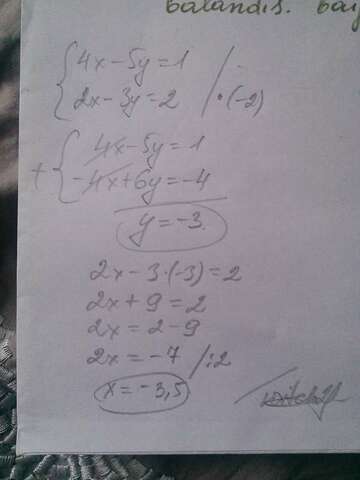 balandis.
4x-5y=1
2x-3y=2 /·(-2)
+ 4x-5y=1
-4x+6y=-4
y=-3
2x-3·(-3)=2
2x+9=2
2x=2-9
2x=-7 /:2
x=-3,5